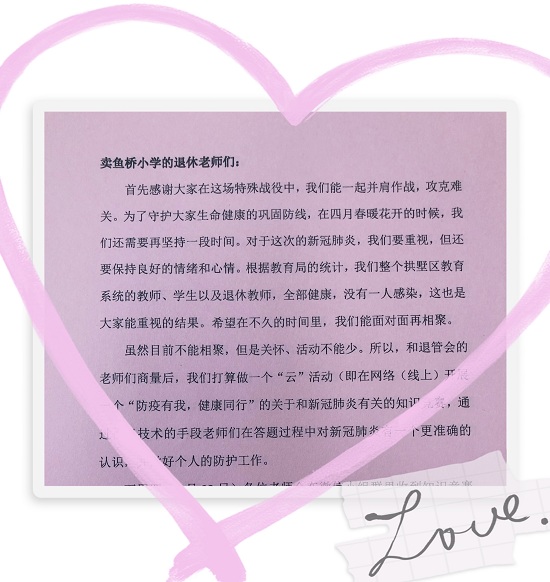 卖鱼桥小学的退休老师们：
首先感谢大家在这场特殊战役中，我们能一起并肩作战，攻克难
关。为了守护大家生命健康的巩固防线，在四月春暖花开的时候，我
们还需要再坚持一段时间。对于这次的新冠肺炎，我们要重视，但还
要保持良好的情绪和心情。根据教育局的统计，我们整个拱墅区教育
系统的教师、学生以及退休教师，全部健康，没有一人感染，这也是
大家能重视的结果。希望在不久的时间里，我们能面对面再相聚。
虽然目前不能相聚，但是关怀、活动不能少。所以，和退管会的
老师们商量后，我们打算做一个“云”活动（即在网络（线上）开展
一个“防疫有我，健康同行”的关于和新冠肺炎有关的知识竞赛，通
技术的手段老师们在答题过程中对新冠肺炎有一个更准确的
认识，好个人的防护工作。
Love.